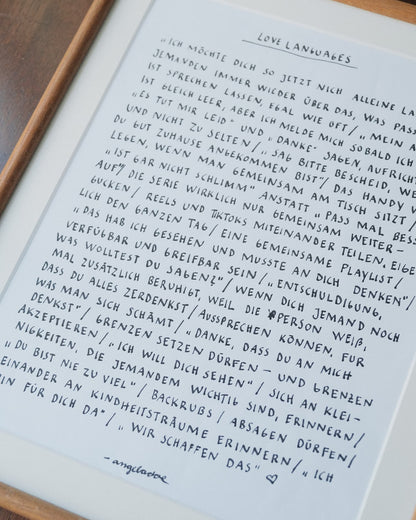 LOVE LANGUAGES
„ICH MÖCHTE DICH SO JETZT NICH ALLEINE LA
JEMANDEN IMMER WIEDER ÜBER DAS, WAS PASS
IST SPRECHEN LASSEN, EGAL WIE OFT/ „MEIN A
IST GLEICH LEER, ABER ICH MELDE MICH SOBALD ICH
„ES TUT MIR LEID" UND „DANKE" SAGEN, AUFRICHT
UND NICHT ZU SELTEN/ „SAG BITTE BESCHEID, WE
DU GUT ZUHAUSE ANGEKOMMEN BIST"/ DAS HANDY
LEGEN, WENN MAN GEMEINSAM AM TISCH SITZT/
„IST GAR NICHT SCHLIMM" ANSTATT „PASS MAL BESS
AUF"/ DIE SERIE WIRKLICH NUR GEMEINSAM WEITER-
GUCKEN/ REELS UND TIKTOKS MITEINANDER TEILEN, EIGE
LICH DEN GANZEN TAG/ EINE GEMEINSAME PLAYLIST/
„DAS HAB ICH GESEHEN UND MUSSTE AN DICH DENKEN"/
VERFÜGBAR UND GREIFBAR SEIN/ „ENTSCHULDIGUNG,
WAS WOLLTEST DU SAGEN?"/ WENN DICH JEMAND NOCH
MAL ZUSÄTZLICH BERUHIGT, WEIL DIE PERSON WEIß,
DASS DU ALLES ZERDENKST/ AUSSPRECHEN KÖNNEN, FÜR
WAS MAN SICH SCHÄMT/ „DANKE, DASS DU AN MICH
DENKST"/ GRENZEN SETZEN DÜRFEN – UND GRENZEN
AKZEPTIEREN/ „ICH WILL DICH SEHEN"/ SICH AN KLEI-
NIGKEITEN, DIE JEMANDEM WICHTIG SIND, ERINNERN/
„DU BIST NIE ZU VIEL"/ BACKRUBS/ ABSAGEN DÜRFEN/
EINANDER AN KINDHEITSTRÄUME ERINNERN/ „ICH
IN FÜR DICH DA"/ „WIR SCHAFFEN DAS" ♡